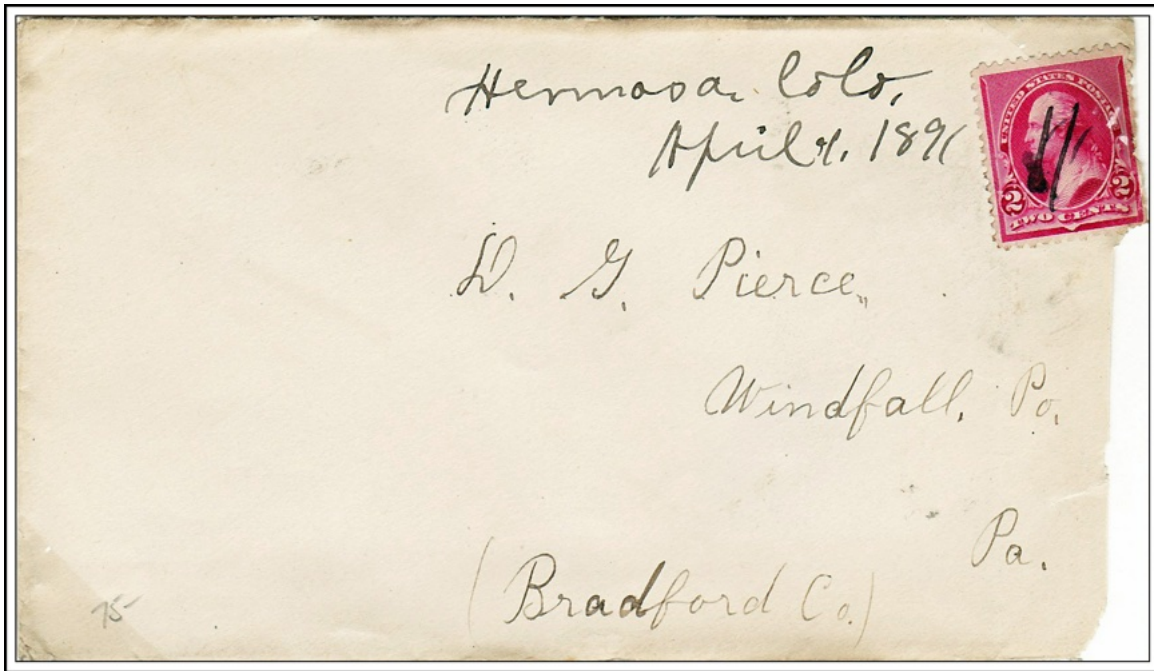 Hermosa Colo.
April 9, 1891
UNITED STATES POSTAGE
2 2
TWO CENTS
D. G. Pierce,
Windfall, Po.
Pa.
(Bradford Co.)
75